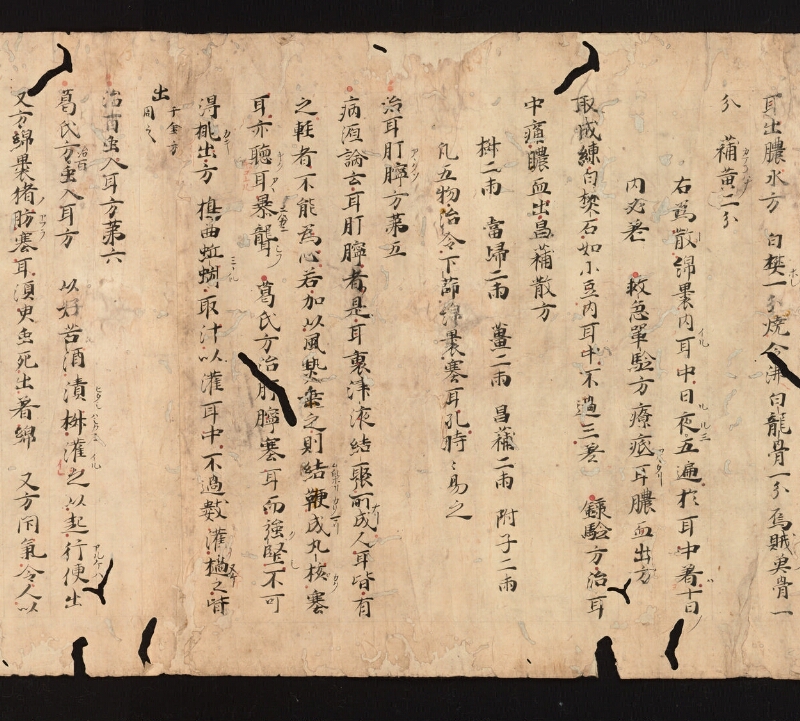 耳出膿水方 白礬一分燒令沸白龍骨一分烏賊魚骨一
分 蒲黃二分
右爲散綿裹內耳中日夜五遍於耳中著十日
內必差 救急單驗方療疷耳膿血出方
取成練白礬石如小豆內耳中不過三差 錄驗方治耳
中瘨膿血出昌蒲散方
椒二兩 當歸二兩 薑二兩 昌蒲二兩 附子二兩
凡五物治令下篩綿裹塞耳孔時〻易之
治耳耵聹方第五
病源論云耳耵聹者是耳裏津液結聚所成人耳皆有
之輕者不能爲心若加以風熱乘之則結鞕成丸核塞
耳亦聽耳暴聾 葛氏方治耵聹塞耳而強堅不可
得挑出方 搗曲蚯蚓取汁以灌耳中不過數灌之皆
出
千金方
同之
治百虫入耳方第六
葛氏方治百虫入耳方 以好苦酒漬椒灌之以起行便出
又方綿裹猪肪塞耳須臾虫死出著綿 又方閇氣令人以